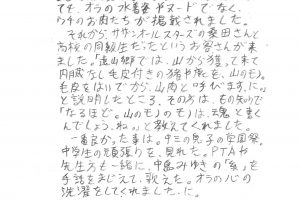 でも、オラの水着姿やヌードでなく、
ウチのお肉たちが掲載されました。
それから、サザンオールスターズの桑田さんと
高校の同級生だったというお客さんが来
ました。「遠山郷では、山から獲って来て
内臓なし毛皮付きの猪や鹿を、山のモノ。
毛皮をはいでから、山肉と呼びますに。」
と説明したところ、その方は、もの知りで
「なるほど。山のモノのモノは、魂と書く
んでしょうね。」と教えてくれました。
一番良かった事は、チミの息子の学園祭。
中学生の頑張りを見れた。PTAや
先生方も一緒に、中島みゆきの「糸」を
手話をまじえて、歌えた。オラの心の
洗濯をしてくれました。に。